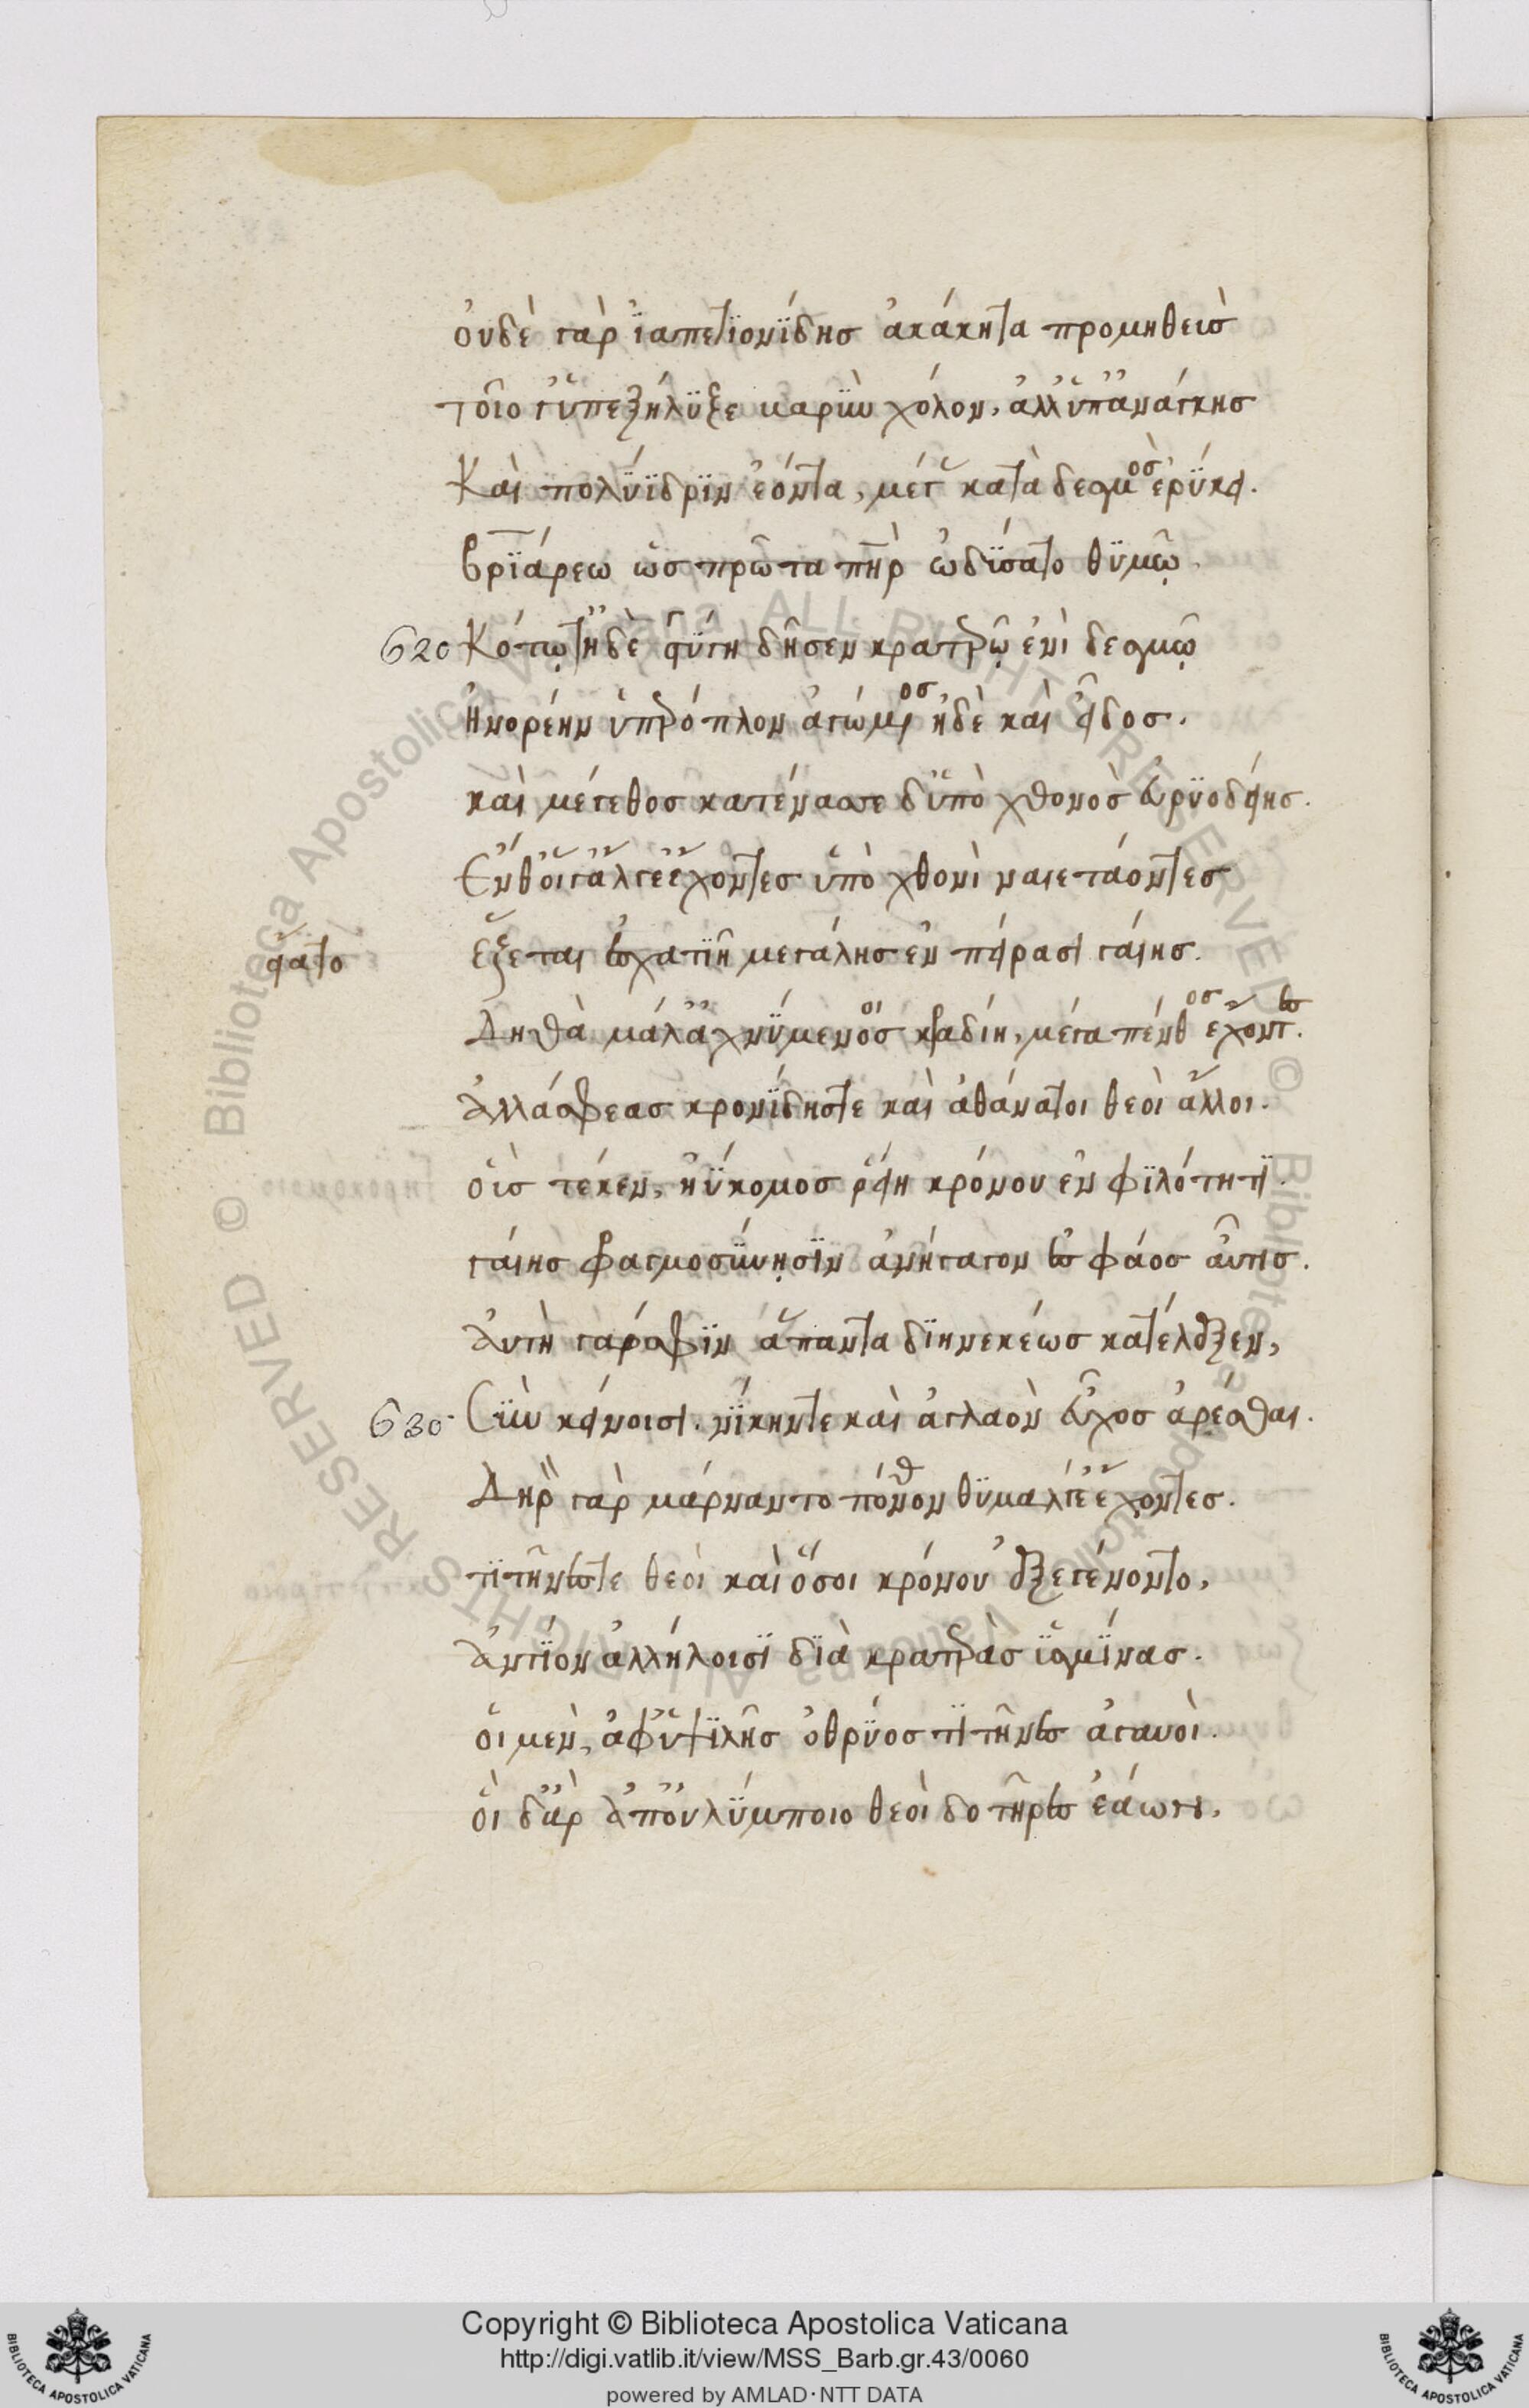 οὐδὲ γὰρ ἰαπετϊονίδησ ἀκάκητα προμηθεὺσ
τοῖο γ' ὑπεξήλϋξε βαρὺν χόλον, ἀλλ' ὑπ' ἀνάγκησ
Καὶ πολΰϊδρϊν ἐόντα, μέγασ κατὰ δεσμὸσ ἐρύκει.
βρϊάρεω ὡσ πρῶτα πὴρ ὠδΐσατο θϋμῷ.
620 Κόττῳ τ' ἠδὲ γύγη δῆσεν κρατερῷ ἐνὶ δεσμῷ
Ἠνορέην ὑπέροπλον ἀγώμενοσ ἠδὲ καὶ εἶδοσ.
καὶ μέγεθοσ κατένασσε δ' ὑπὸ χθονὸσ εὐρϋοδείησ.
Ἔνθ' οἵγ' ἄλγε' ἔχοντεσ ὑπὸ χθονὶ ναιετάοντεσ
ἕζεται ἐσχατϊῇ μεγάλησ ἐν πείρασι γαίησ.
εἵατο
Δηθὰ μάλ' ἀχνΰμενοι κραδίη, μέγα πένθοσ ἔχοντεσ.
Ἀλλά σφεασ κρονΐδησ τε καὶ ἀθάνατοι θεοὶ ἄλλοι.
οὓσ τέκεν, ἠΰκομοσ ῥείη κρόνου ἐν φϊλότητϊ.
γαίησ φραγμοσύνῃσϊν ἀνήγαγον ἐσ φάοσ αὖτισ.
Αὐτὴ γάρ σφϊν ἅπαντα δϊηνεκέωσ κατέλεξεν,
630 Σὺν κείνοισι. νΐκην τε καὶ ἀγλαὸν εὖχοσ ἀρέσθαι.
Δηρὸν γὰρ μάρναντο πόνον θϋμαλγέ' ἔχοντεσ.
τιτῆνέσ τε θεοὶ καὶ ὅσοι κρόνου ἐξεγένοντο,
Ἀντΐον ἀλλήλοισϊ δϊὰ κρατερὰσ ὑσμΐνασ.
οἱ μὲν, ἀφ' ὑψϊλῆσ ὀθρΰοσ τιτῆνεσ ἀγαυοὶ.
οἱ δ' ἄρ' ἀπ' οὐλΰμποιο θεοὶ δοτῆρεσ ἐάων,
Copyright © Biblioteca Apostolica Vaticana
http://digi.vatlib.it/view/MSS_Barb.gr.43/0060
powered by AMLAD·NTT DATA